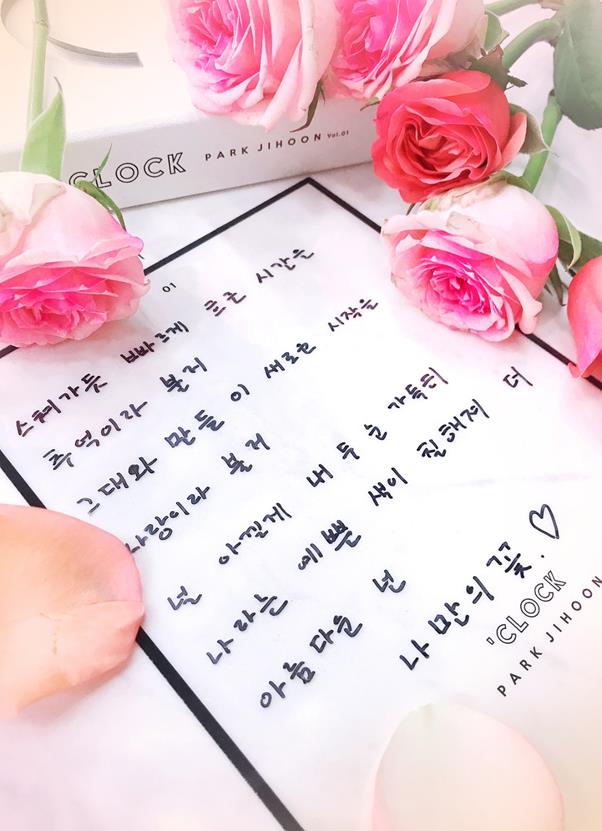 'CLOCK PARK JIHOON Vol.01
01
스쳐가듯 빠르게 흐른 시간은
추억이라 불러
그대와 만들 이 새로운 시작을
사랑이라 불러
널 아낄게 내 두 눈 가득히
나라는 예쁜 색이 진해져 더
아름다운 넌
나만의 꽃.♡
'CLOCK
PARK JIHOON